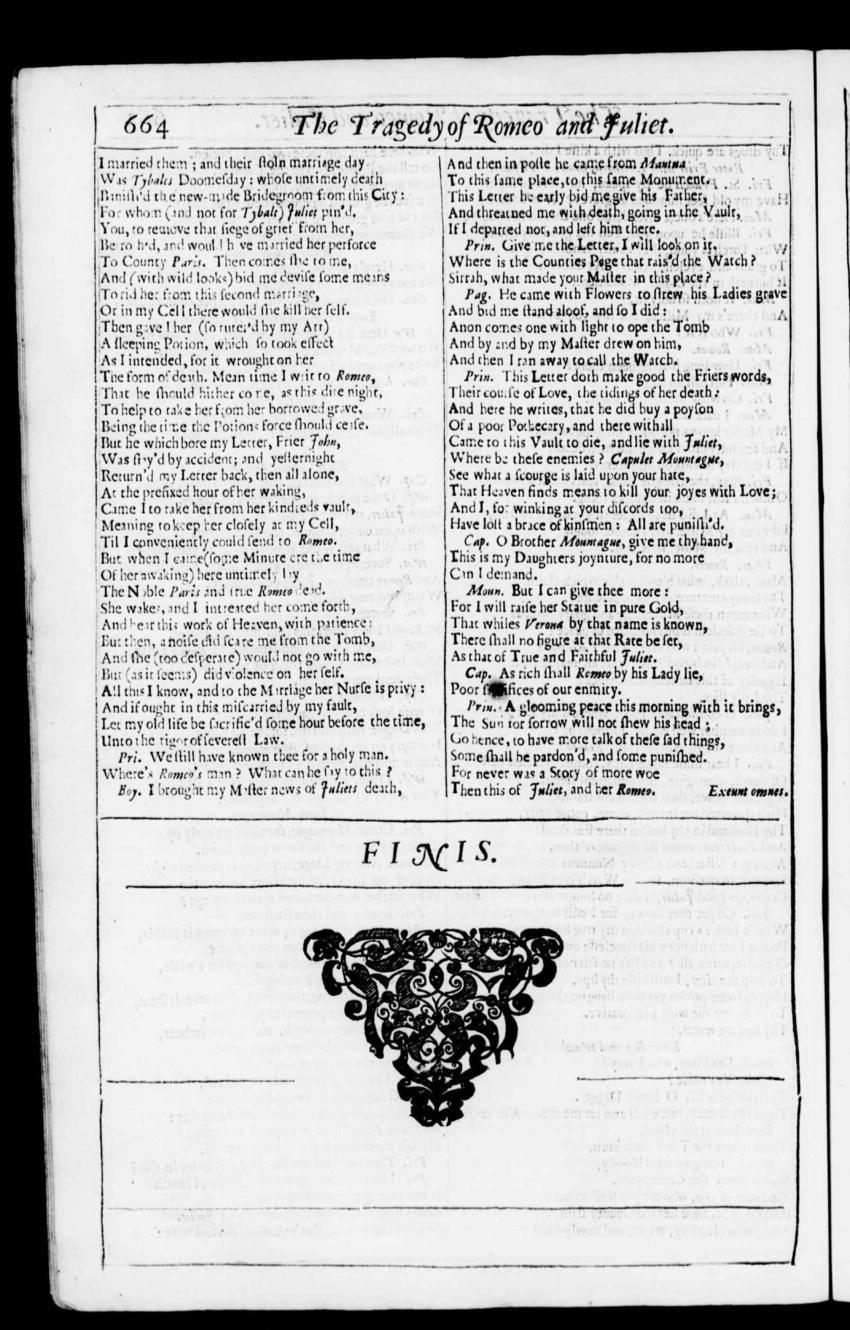 664
The Tragedy of Romeo and Juliet.
I married them; and their ſtoln marriage day
Was Tybalts Doomeſday: whoſe untimely death
Baniſh'd the new-made Bridegroom from this City:
For whom (and not for Tybalt) Juliet pin'd.
You, to remove that ſiege of grief from her,
Betroth'd, and would have married her perforce
To County Paris. Then comes ſhe to me,
And (with wild looks) bid me deviſe ſome means
To rid her from this ſecond marriage,
Or in my Cell there would ſhe kill her ſelf.
Then gave I her (ſo tutor'd by my Art)
A ſleeping Potion, which ſo took effect
As I intended, for it wrought on her
The form of death. Mean time I writ to Romeo,
That he ſhould hither come, as this dire night,
To help to take her from her borrowed grave,
Being the time the Potions force ſhould ceaſe.
But he which bore my Letter, Frier John,
Was ſtay'd by accident; and yeſternight
Return'd my Letter back, then all alone,
At the prefixed hour of her waking,
Came I to take her from her kindreds vault,
Meaning to keep her cloſely at my Cell,
Til I conveniently could ſend to Romeo.
But when I came (ſome Minute ere the time
Of her awaking) here untimely lay
The Noble Paris and true Romeo dead.
She wakes, and I intreated her come forth,
And bear this work of Heaven, with patience:
But then, a noiſe did ſcare me from the Tomb,
And ſhe (too deſperate) would not go with me,
But (as it ſeems) did violence on her ſelf.
All this I know, and to the Marriage her Nurſe is privy:
And if ought in this miſcarried by my fault,
Let my old life be ſacrific'd ſome hour before the time,
Unto the rigor of ſevereſt Law.
Pri. We ſtill have known thee for a holy man.
Where's Romeo's man? What can he ſay to this?
Boy. I brought my Maſter news of Juliets death,
And then in poſte he came from Mantua
To this ſame place, to this ſame Monument.
This Letter he early bid me give his Father,
And threatned me with death, going in the Vault,
If I departed not, and left him there.
Prin. Give me the Letter, I will look on it,
Where is the Counties Page that rais'd the Watch?
Sirrah, what made your Maſter in this place?
Pag. He came with Flowers to ſtrew his Ladies grave
And bid me ſtand aloof, and ſo I did:
Anon comes one with light to ope the Tomb
And by and by my Maſter drew on him,
And then I ran away to call the Watch.
Prin. This Letter doth make good the Friers words,
Their courſe of Love, the tidings of her death:
And here he writes, that he did buy a poyſon
Of a poor Pothecary, and therewithall
Came to this Vault to die, and lie with Juliet,
Where be theſe enemies? Capulet Mountague,
See what a ſcourge is laid upon your hate,
That Heaven finds means to kill your joyes with Love;
And I, for winking at your diſcords too,
Have loſt a brace of kinſmen: All are puniſh'd.
Cap. O Brother Mountague, give me thy hand,
This is my Daughters joynture, for no more
Can I demand.
Moun. But I can give thee more:
For I will raiſe her Statue in pure Gold,
That whiles Verona by that name is known,
There ſhall no figure at that Rate be ſet,
As that of True and Faithful Juliet.
Cap. As rich ſhall Romeo by his Lady lie,
Poor ſacrifices of our enmity.
Prin. A glooming peace this morning with it brings,
The Sun for ſorrow will not ſhew his head;
Go hence, to have more talk of theſe ſad things,
Some ſhall be pardon'd, and ſome puniſhed.
For never was a Story of more woe
Then this of Juliet, and her Romeo. Exeunt omnes.
FINIS.